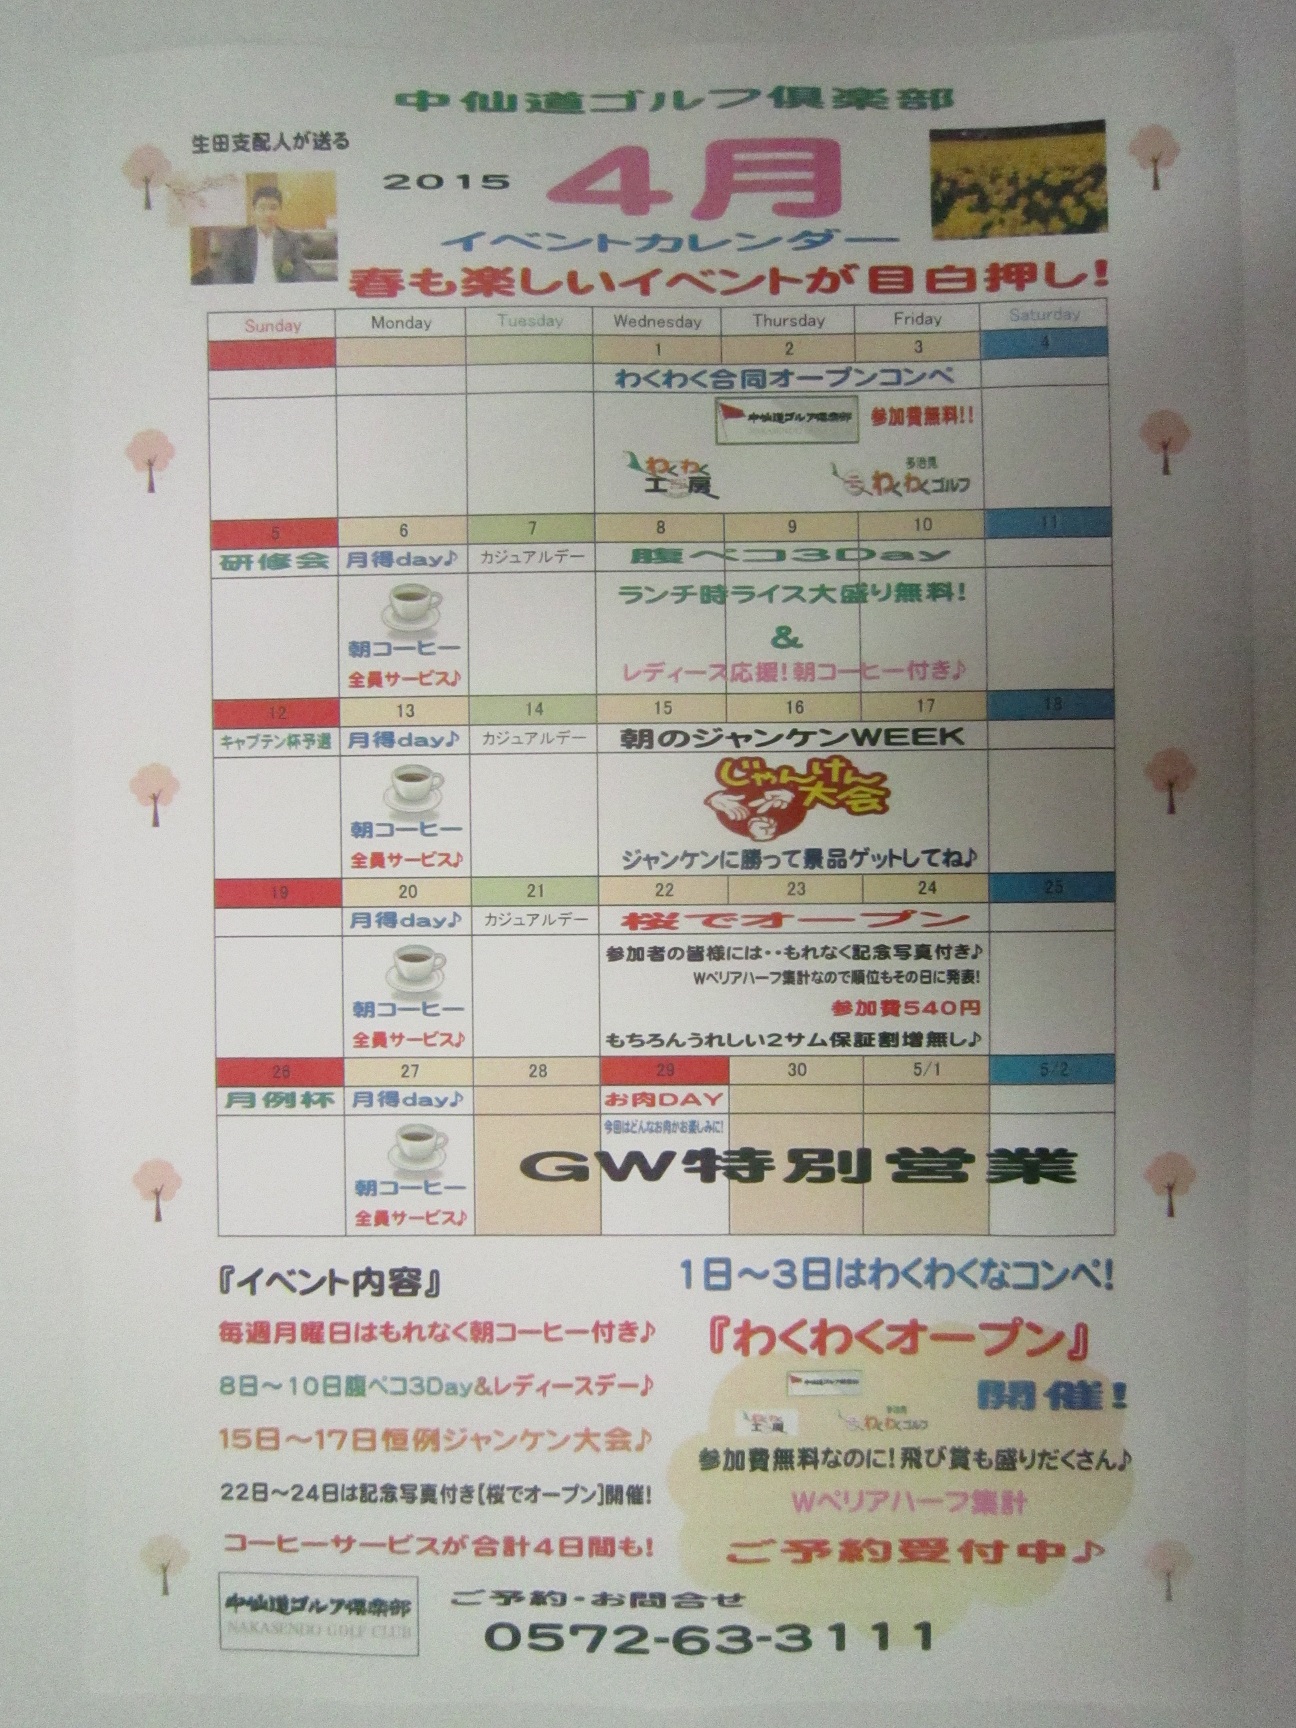 中仙道ゴルフ倶楽部
生田支配人が送る
2015
4月
イベントカレンダー
春も楽しいイベントが目白押し!
Sunday Monday Tuesday Wednesday Thursday Friday Saturday
1 2 3 4
わくわく合同オープンコンペ
中仙道ゴルフ倶楽部 参加費無料!!
わくわく工房
多治見
わくわくゴルフ
5 6 7 8 9 10 11
研修会 月得day♪ カジュアルデー 腹ペコ3Day
ランチ時ライス大盛り無料!
&
朝コーヒー
レディース応援!朝コーヒー付き♪
全員サービス♪
12 13 14 15 16 17 18
キャプテン杯予選 月得day♪ カジュアルデー 朝のジャンケンWEEK
じゃんけん
大会
朝コーヒー
全員サービス♪
ジャンケンに勝って景品ゲットしてね♪
19 20 21 22 23 24 25
月得day♪ カジュアルデー 桜でオープン
参加者の皆様には・・もれなく記念写真付き♪
Wペリアハーフ集計なので順位もその日に発表!
朝コーヒー
参加費540円
全員サービス♪
もちろんうれしい2サム保証割増無し♪
26 27 28 29 30 5/1 5/2
月例杯 月得day♪ お肉DAY
今回はどんなお肉かお楽しみに!
GW特別営業
朝コーヒー
全員サービス♪
『イベント内容』
毎週月曜日はもれなく朝コーヒー付き♪
8日～10日腹ペコ3Day&レディースデー♪
15日～17日恒例ジャンケン大会♪
22日～24日は記念写真付き[桜でオープン]開催!
コーヒーサービスが合計4日間も!
1日～3日はわくわくなコンペ!
『わくわくオープン』
開催!
中仙道ゴルフ倶楽部
わくわく工房
多治見
わくわくゴルフ
参加費無料なのに!飛び賞も盛りだくさん♪
Wペリアハーフ集計
ご予約受付中♪
中仙道ゴルフ倶楽部
NAKASENDO GOLF CLUB
ご予約・お問合せ
0572-63-3111